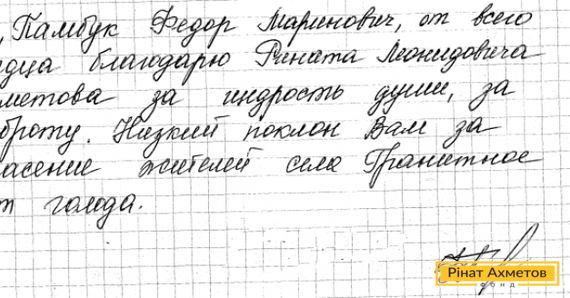 , Памбук Федор Маринович, от всего
рдца благодарю Рината Леонидовича
метова за щедрость души, за
броту. Низкий поклон Вам за
асение жителей села Гранитное
т голода.
Рінат Ахметов
фонд